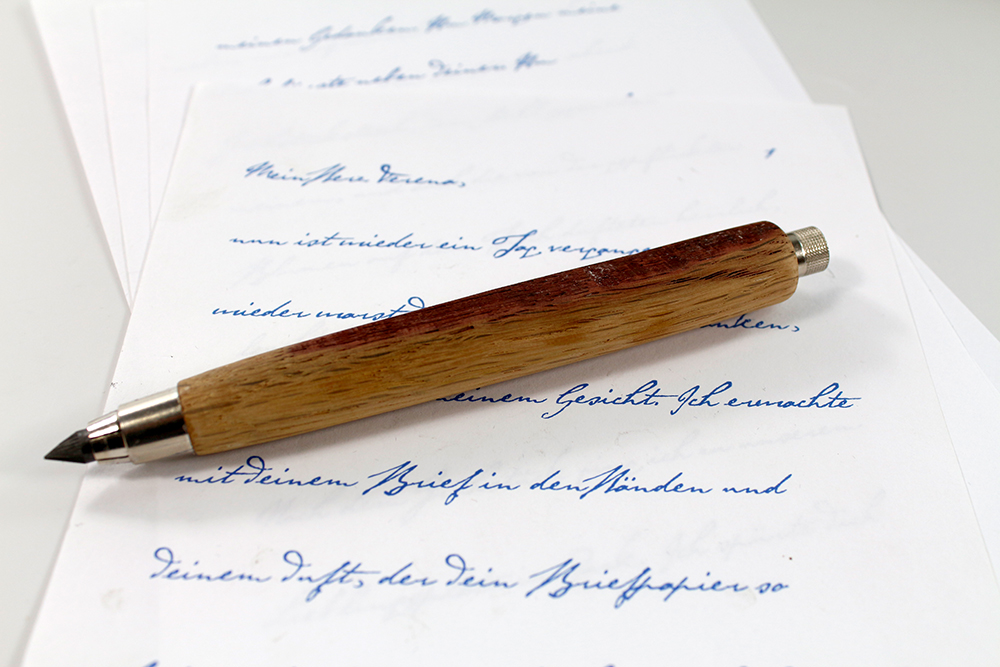 meinen Gedanken Ihn Morgen meine
neben deinen Ihn
Meine Verena,
nun ist wieder ein Tag
wieder warst
nken,
einem Gesicht. Ich erwachte
mit deinem Brief in den Händen und
deinem Duft, der dein Briefpapier so